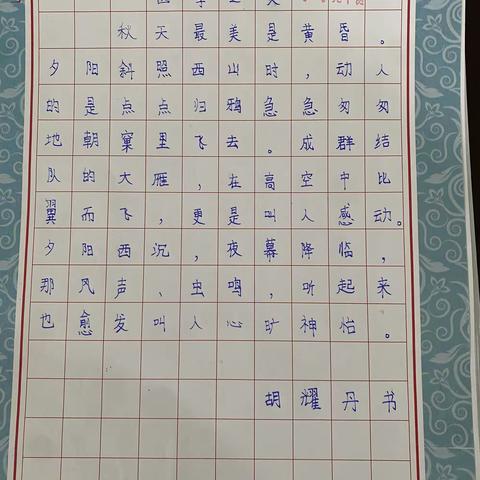 四季之美
秋天最美是黄昏。
夕阳斜照西山时，动人
的是点点归鸦急急匆匆
地朝窠里飞去。成群结
队的大雁，在高空中比
翼而飞，更是叫人感动。
夕阳西沉，夜幕降临，
那风声、虫鸣，听起来
也愈发叫人心旷神怡。
胡耀丹书